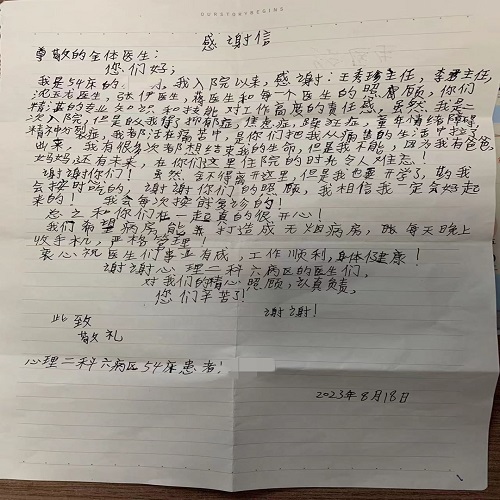 OURSTORYBEGINS
感谢信
尊敬的全体医生:
您们好;
我是54床的 小 我入院以来,感谢:王秀珍主任,李 主任,
医生,张伊医生,蒋医生和每一个医生的照顾顾,你们
精湛的专业知识和技能对工作高度的责任感,虽然我是二
次入院,但是以我得了抑郁症,焦虑症,睡 症,童年情绪障碍
精神分裂症,我都活在痛苦中,是你们把我从痛苦的生活中拉了
出来,我有很多次都想结束我的生命,但是我不能,因为我有爸爸
妈妈,还有未来,在你们这里住院的时光令人难忘!
谢谢你们!虽然,舍不得离开这里,但是我也要开学了,药我
会按时吃的,谢谢你们的照顾,我相信我一定会好起
来的!我会每次按时复诊的!
总之和你们在一起真的很开心!
我们希望病房能 打造成无烟病房,晚每天晚上
收手机,严格管理!
衷心祝医生们事业有成,工作顺利,身体健康!
谢谢心理二科六病区的医生们,
对我们的精心照顾,认真负责,
您们辛苦了!
谢谢!
此致
敬礼
心理二科六病区54床患者:
2023年8月18日